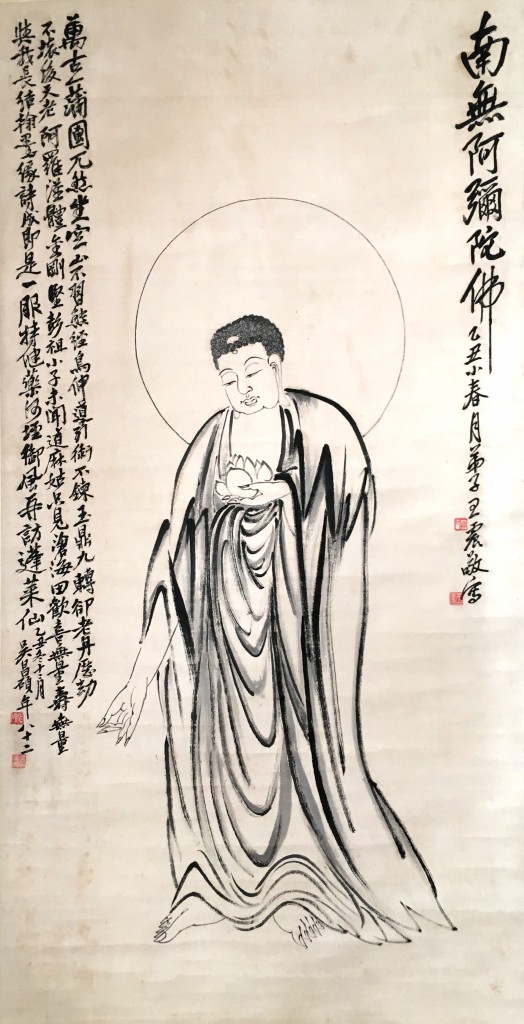 南無阿彌陀佛
乙丑小春月弟子王震敬寫
萬古一蒲團兀然坐空山不習熊經鳥伸導引術不鍊玉鼎九轉卻老丹歷劫
不壞後天老阿羅漢體金剛堅彭祖小子未聞道麻姑只見滄海田歡喜無量壽無量
與我長結翰墨緣詩成即是一服特健藥何必御風再訪蓬萊仙
乙丑冬十二月
吳昌碩年八十二